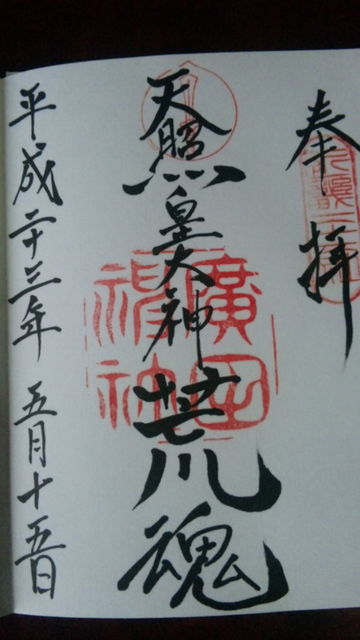 奉拝
天照皇大神荒魂
廣田神社
平成二十三年 五月十五日